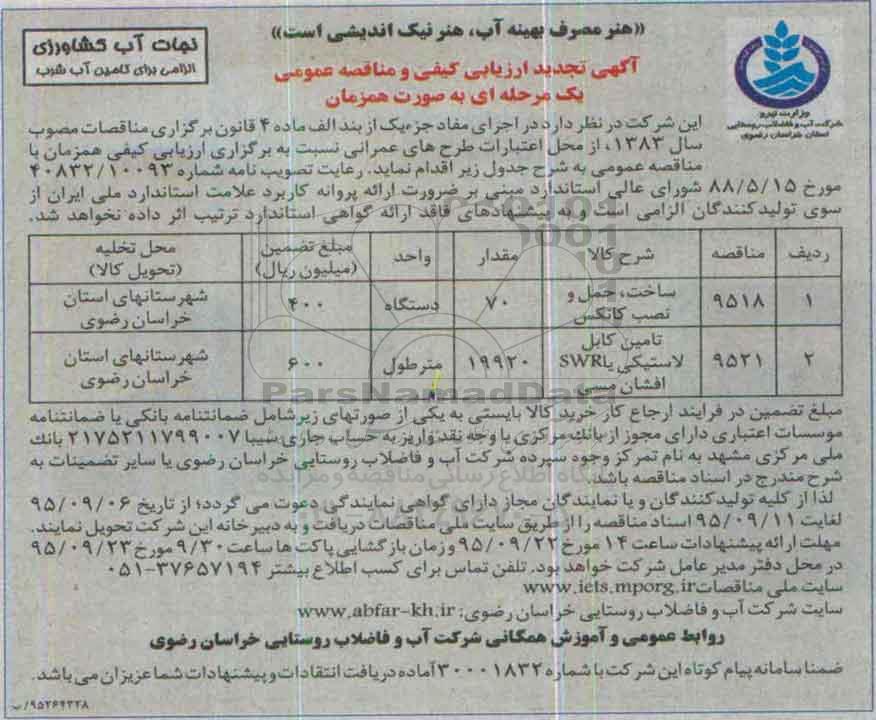 «هنر مصرف بهینه آب، هنر نیک اندیشی است»
نجات آب کشاورزی
الزامی برای تامین آب شرب
وزارت نیرو
شرکت آب و فاضلاب روستایی
استان خراسان رضوی
آگهی تجدید ارزیابی کیفی و مناقصه عمومی
یک مرحله ای به صورت همزمان
این شرکت در نظر دارد در اجرای مفاد جزء یک از بند الف ماده ۴ قانون برگزاری مناقصات مصوب
سال ۱۳۸۳، از محل اعتبارات طرح های عمرانی نسبت به برگزاری ارزیابی کیفی همزمان با
مناقصه عمومی به شرح جدول زیر اقدام نماید. رعایت تصویب نامه شماره ۴۰۸۳۲/۱۰۰۹۳
مورخ ۸۸/۵/۱۵ شورای عالی استاندارد مبنی بر ضرورت ارائه پروانه کاربرد علامت استاندارد ملی ایران از
سوی تولیدکنندگان الزامی است و به پیشنهادهای فاقد ارائه گواهی استاندارد ترتیب اثر داده نخواهد شد.
ردیف مناقصه شرح کالا مقدار واحد مبلغ تضمین (میلیون ریال) محل تخلیه (تحویل کالا)
۱ ۹۵۱۸ ساخت، حمل و نصب کانکس ۷۰ دستگاه ۴۰۰ شهرستانهای استان خراسان رضوی
۲ ۹۵۲۱ تامین کابل لاستیکی یا SWR افشان مسی ۱۹۹۲۰ متر طول ۶۰۰ شهرستانهای استان خراسان رضوی
مبلغ تضمین در فرایند ارجاع کار خرید کالا بایستی به یکی از صورتهای زیر شامل ضمانتنامه بانکی یا ضمانتنامه
موسسات اعتباری دارای مجوز از بانک مرکزی یا وجه نقد واریز به حساب جاری شیبا ۲۱۷۵۲۱۱۷۹۹۰۰۷ بانک
ملی مرکزی مشهد به نام تمرکز وجوه سپرده شرکت آب و فاضلاب روستایی خراسان رضوی یا سایر تضمینات به
شرح مندرج در اسناد مناقصه باشد.
لذا از کلیه تولیدکنندگان و یا نمایندگان مجاز دارای گواهی نمایندگی دعوت می گردد؛ از تاریخ ۹۵/۰۹/۰۶
لغایت ۹۵/۰۹/۱۱ اسناد مناقصه را از طریق سایت ملی مناقصات دریافت و به دبیرخانه این شرکت تحویل نمایند.
مهلت ارائه پیشنهادات ساعت ۱۴ مورخ ۹۵/۰۹/۲۲ و زمان بازگشایی پاکت ها ساعت ۹/۳۰ مورخ ۹۵/۰۹/۲۳
در محل دفتر مدیر عامل شرکت خواهد بود. تلفن تماس برای کسب اطلاع بیشتر ۳۷۶۵۷۱۹۴-۰۵۱
سایت ملی مناقصات www.iets.mporg.ir
سایت شرکت آب و فاضلاب روستایی خراسان رضوی: www.abfar-kh.ir
روابط عمومی و آموزش همگانی شرکت آب و فاضلاب روستایی خراسان رضوی
ضمنا سامانه پیام کوتاه این شرکت با شماره ۳۰۰۰۱۸۳۲ آماده دریافت انتقادات و پیشنهادات شما عزیزان می باشد.
۹۵۲۶۴۳۲۸/ب
ParsNamadData